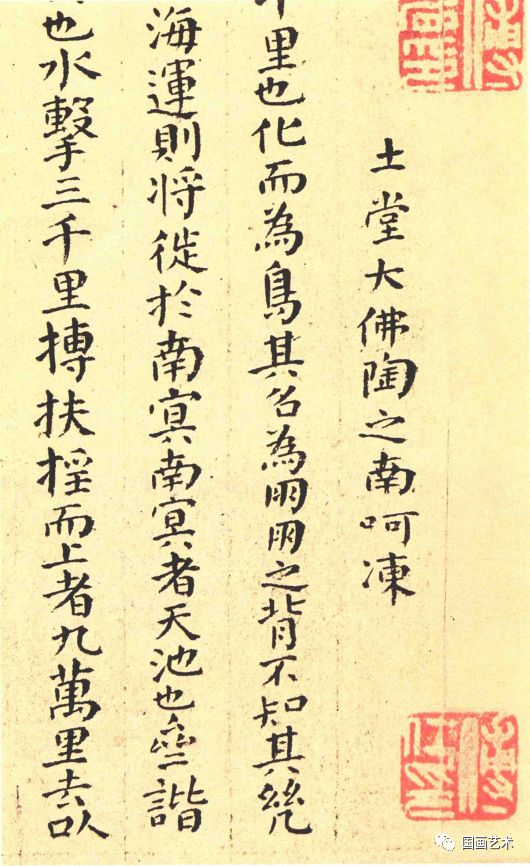 土堂大佛陶之南呵凍
千里也化而為鳥其名為朋朋之背不知其幾
海運則将徙於南㝠南㝠者天池也亝諧
也水擊三千里摶扶揺而上者九萬里去以
国画艺术